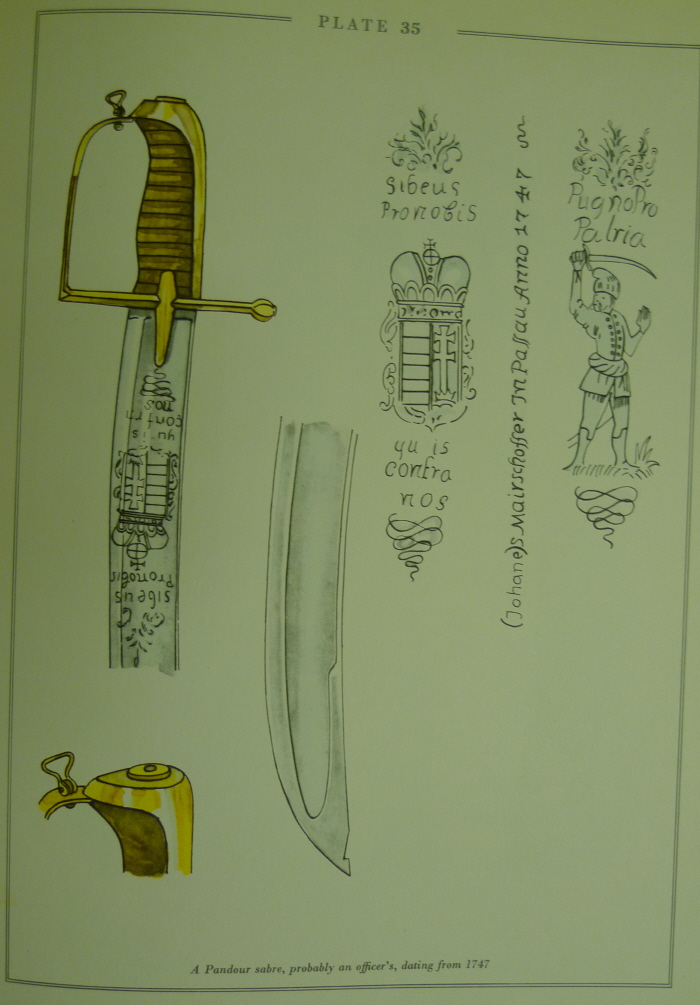 PLATE 35
Sibeus
Pronobis
yu is
contra
nos
(Johane)s Mairschoffer In Passau Anno 1747
PugnoPro
Patria
nos
contra
yu is
Pronobis
sibeus
A Pandour sabre, probably an officer's, dating from 1747